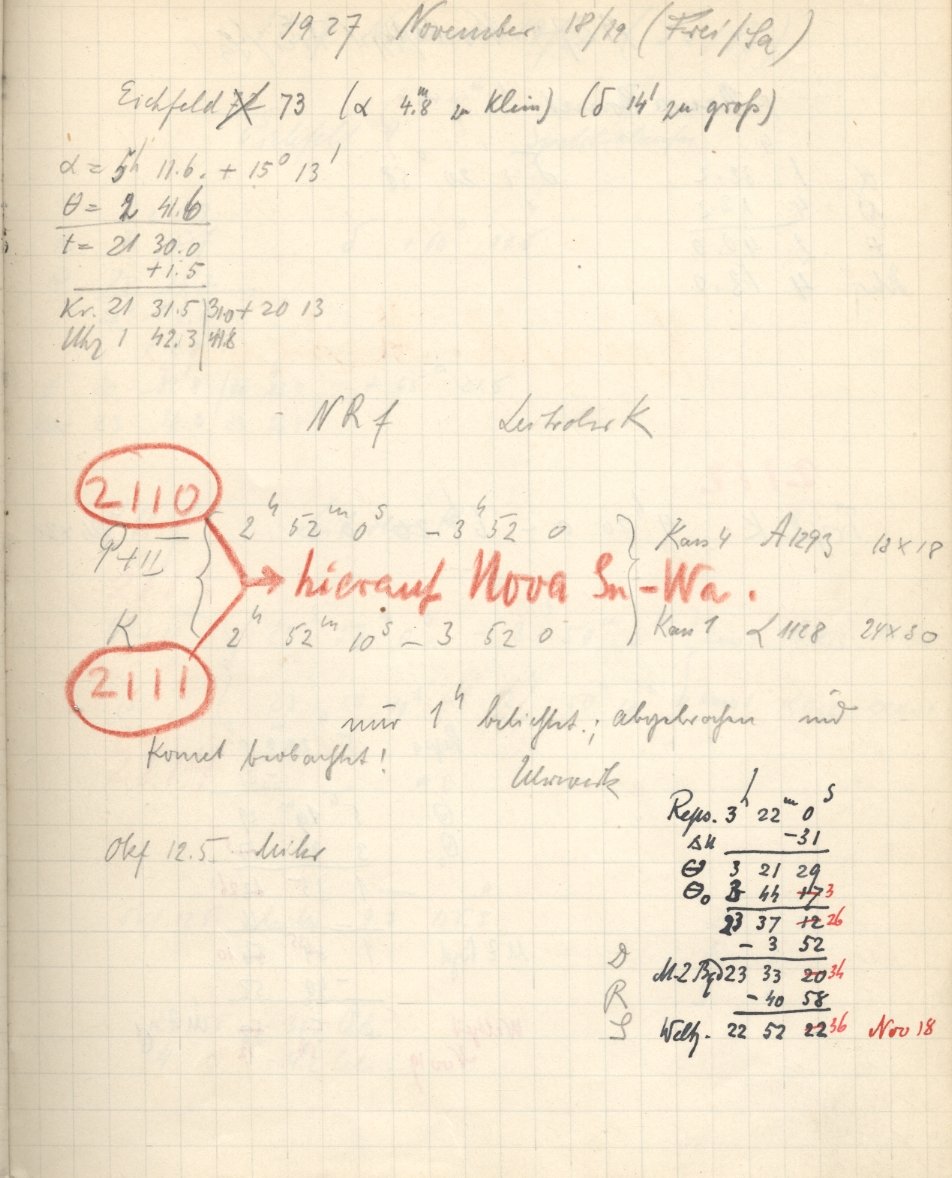 1927 November 18/19 (Frei/Sa)
Eichfeld 73 (α 4.8ᵐ zu klein) (δ 14' zu groß)
α = 5ʰ 11.6. + 15° 13'
θ = 2 41.6
t = 21 30.0
+1.5
Kr. 21 31.5 310 + 20 13
Uhr 1 42.3 418
NRf Leitrohr K
2110
P+II 2ʰ 52ᵐ 0ˢ – 3ʰ 52 0 Kass 4 A1293 18×18
→ hierauf Nova Sn-Wa.
K 2ʰ 52ᵐ 10ˢ – 3 52 0 Kass 1 L1128 24×30
2111
nur 1ʰ belichtet; abgebrochen und
Komet beobachtet!
Uhrwerk
Okf 12.5 Mikr
Reps. 3ʰ 22ᵐ 0ˢ
Δu –31
θ 3 21 29
θ₀ 3 44 17 3
23 37 12 26
– 3 52
D M.Z.Bgd 23 33 20 34
R – 40 58
S Weltz. 22 52 22 36 Nov 18